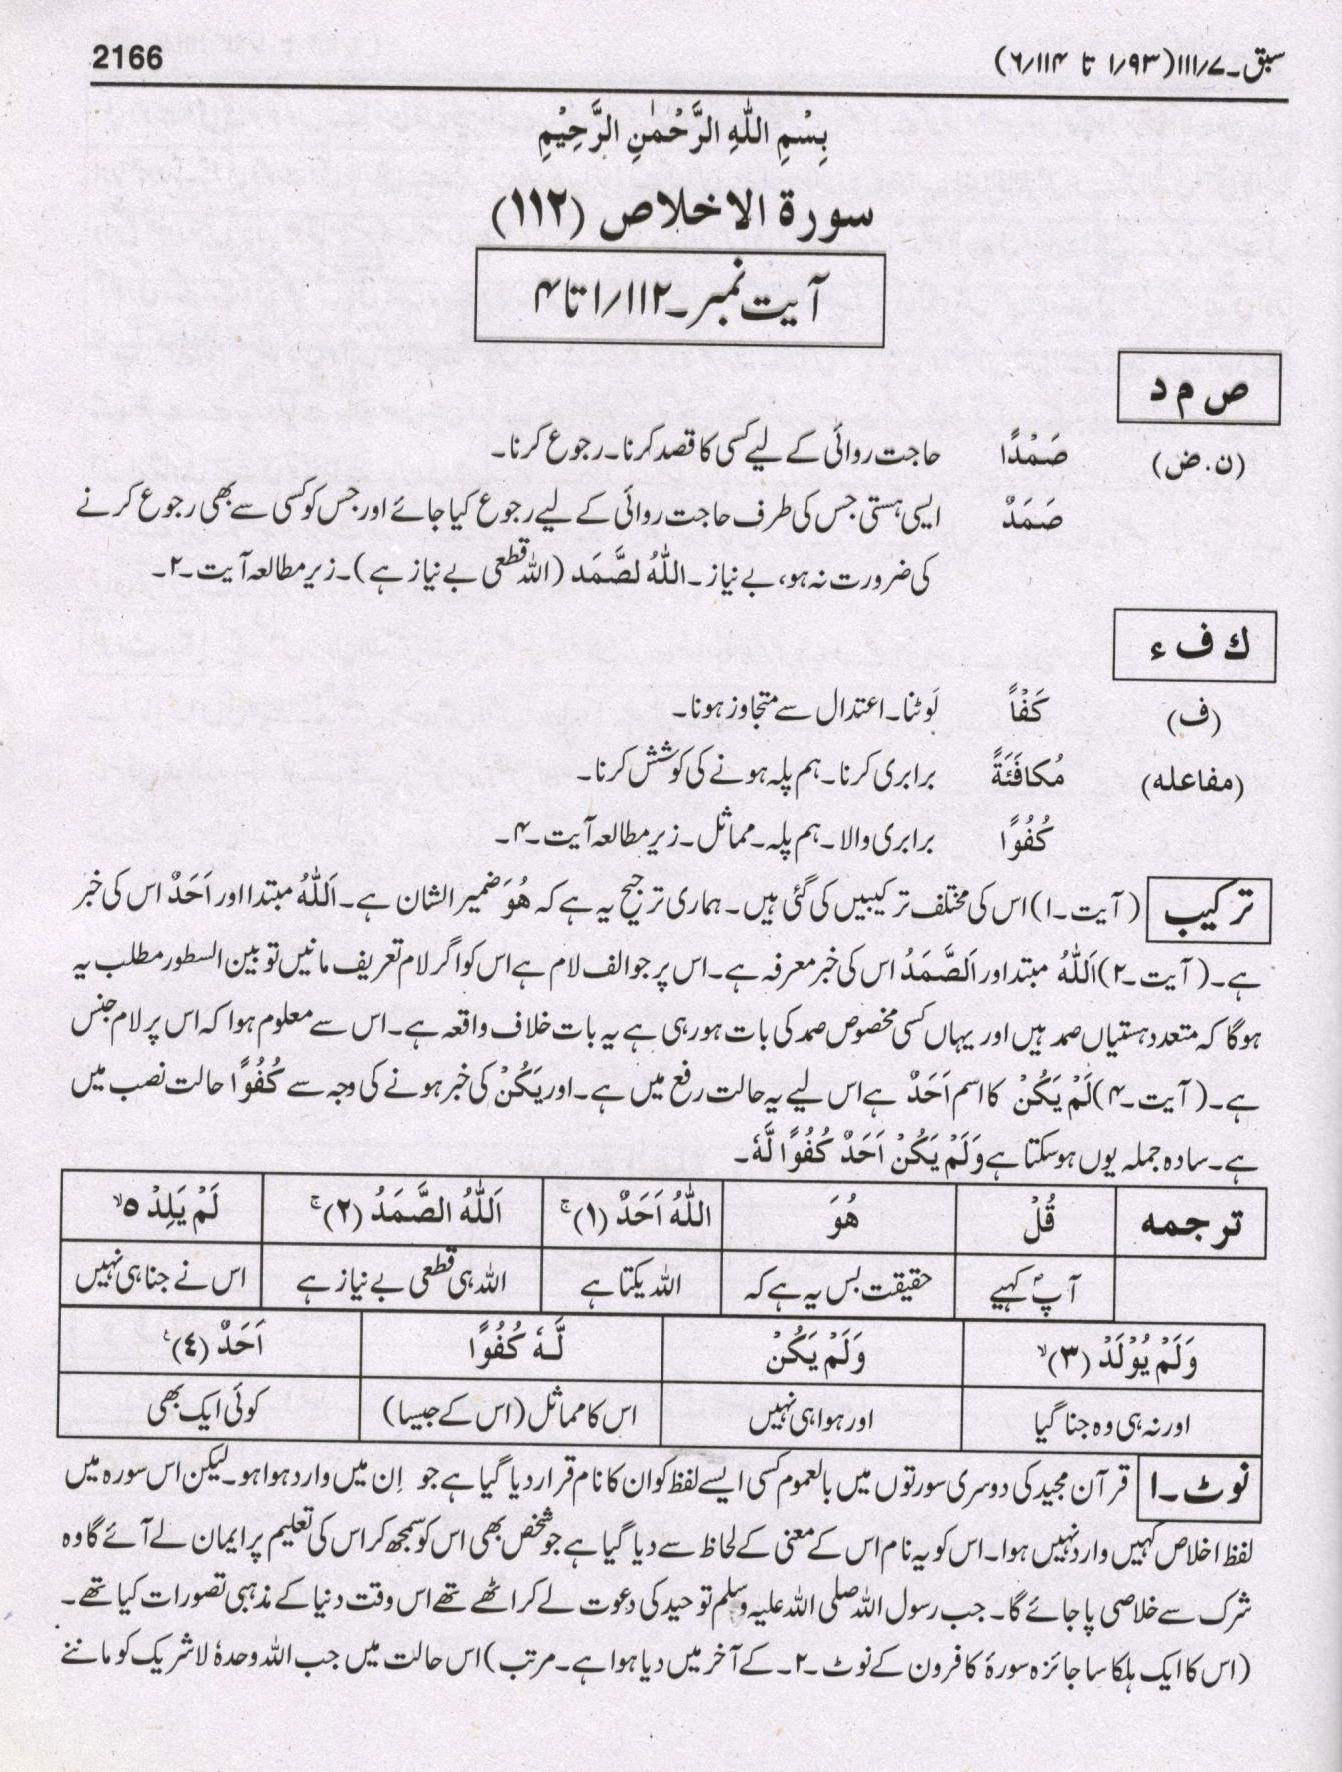 سبق۔۷/۱۱۱(۱/۹۳ تا ۶/۱۱۴) 2166
بِسْمِ اللّٰهِ الرَّحْمٰنِ الرَّحِيْمِ
سورة الاخلاص (۱۱۲)
آیت نمبر۔۱/۱۱۲ تا ۴
ص م د
(ن۔ض) صَمْدًا حاجت روائی کے لیے کسی کا قصد کرنا۔رجوع کرنا۔
صَمَدٌ ایسی ہستی جس کی طرف حاجت روائی کے لیے رجوع کیا جائے اور جس کو کسی سے بھی رجوع کرنے
کی ضرورت نہ ہو، بے نیاز۔ اَللّٰهُ لصَّمَد (اللہ قطعی بے نیاز ہے)۔زیر مطالعہ آیت۔۲۔
ك ف ء
(ف) كَفْأً لَوٹنا۔اعتدال سے متجاوز ہونا۔
(مفاعله) مُكَافَئَةً برابری کرنا۔ہم پلہ ہونے کی کوشش کرنا۔
كُفُوًا برابری والا۔ہم پلہ۔مماثل۔زیر مطالعہ آیت۔۴۔
ترکیب (آیت۔۱)اس کی مختلف ترکیبیں کی گئی ہیں۔ہماری ترجیح یہ ہے کہ هُوَ ضمیر الشان ہے۔اَللّٰهُ مبتدا اور اَحَدٌ اس کی خبر
ہے۔(آیت۔۲)اَللّٰهُ مبتدا ور اَلصَّمَدُ اس کی خبر معرفہ ہے۔اس پر جو الف لام ہے اس کو اگر لام تعریف مانیں تو بین السطور مطلب یہ
ہوگا کہ متعدد ہستیاں صمد ہیں اور یہاں کسی مخصوص صمد کی بات ہورہی ہے یہ بات خلاف واقعہ ہے۔اس سے معلوم ہوا کہ اس پر لام جنس
ہے۔(آیت۔۴)لَمْ يَكُنْ کا اسم اَحَدٌ ہے اس لیے یہ حالت رفع میں ہے۔اور يَكُنْ کی خبر ہونے کی وجہ سے كُفُوًا حالت نصب میں
ہے۔سادہ جملہ یوں ہوسکتا ہے وَلَمْ يَكُنْ اَحَدٌ كُفُوًا لَّهٗ۔
ترجمه قُلْ هُوَ اللّٰهُ اَحَدٌ (۱)ۚ اَللّٰهُ الصَّمَدُ (۲)ۚ لَمْ يَلِدْ ٥ۙ
آپؐ کہیے حقیقت بس یہ ہے کہ اللہ یکتا ہے اللہ ہی قطعی بے نیاز ہے اس نے جنا ہی نہیں
وَلَمْ يُوْلَدْ (۳)ۙ وَلَمْ يَكُنْ لَّهٗ كُفُوًا اَحَدٌ (٤)ۧ
اور نہ ہی وہ جنا گیا اور ہوا ہی نہیں اس کا مماثل (اس کے جیسا) کوئی ایک بھی
نوٹ۔۱ قرآن مجید کی دوسری سورتوں میں بالعموم کسی ایسے لفظ کو ان کا نام قرار دیا گیا ہے جو اِن میں وارد ہوا ہو۔لیکن اس سورہ میں
لفظ اخلاص کہیں وارد نہیں ہوا۔اس کو یہ نام اس کے معنی کے لحاظ سے دیا گیا ہے جو شخص بھی اس کو سمجھ کر اس کی تعلیم پر ایمان لے آئے گا وہ
شرک سے خلاصی پا جائے گا۔جب رسول اللہ صلی اللہ علیہ وسلم توحید کی دعوت لے کر اٹھے تھے اس وقت دنیا کے مذہبی تصورات کیا تھے۔
(اس کا ایک ہلکا سا جائزہ سورۂ کافرون کے نوٹ۔۲۔کے آخر میں دیا ہوا ہے۔مرتب)اس حالت میں جب اللہ وحدہٗ لاشریک کو ماننے